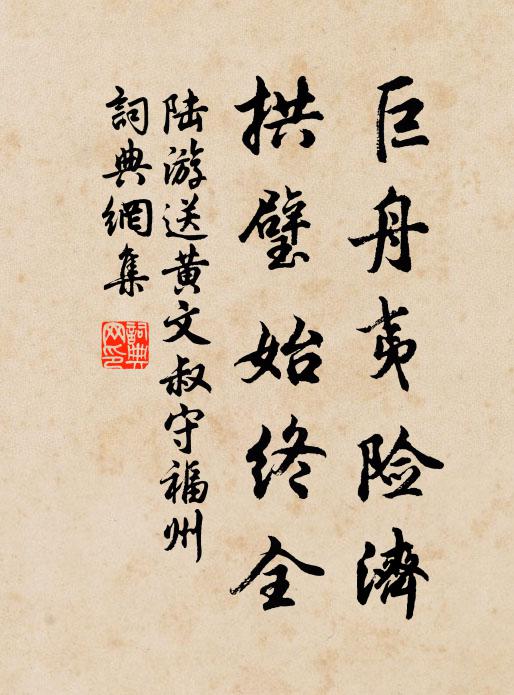 巨舟夷险濟
拱璧始终全
陆游送黄文叔守福州
詞典網集
詞典網印